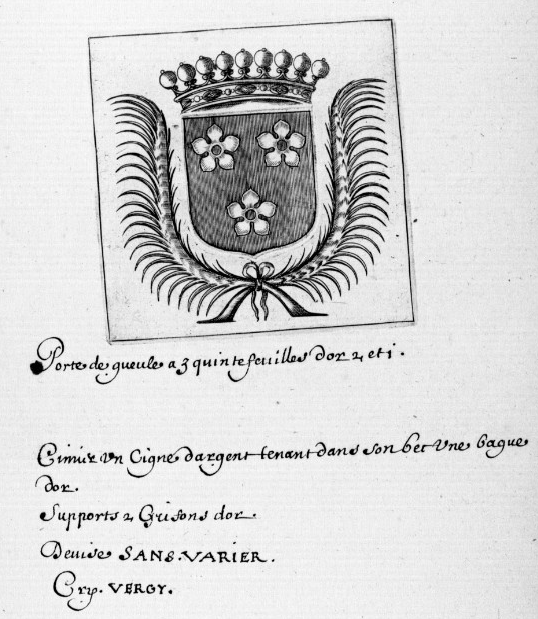 Porte de gueule a 3 quintefeuilles dor 2 et 1.
Cimier Un Cigne dargent tenant dans son bec Une bague
dor.
Supports 2 Grifons dor.
Devise SANS.VARIER.
Cry. VERGY.